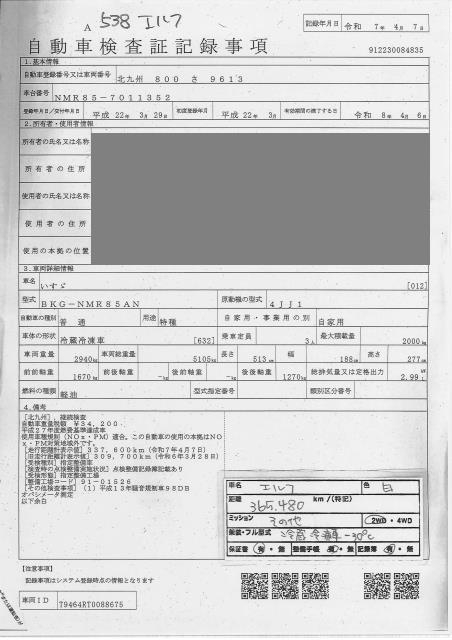 A 538 エルフ
記録年月日 令和 7年 4月 7日
自動車検査証記録事項
912230084835
1.基本情報
自動車登録番号又は車両番号 北九州 800 さ 9613
車台番号 NMR85-7011352
登録年月日/交付年月日 平成 22年 3月 29日 初度登録年月 平成 22年 3月 有効期間の満了する日 令和 8年 4月 6日
2.所有者・使用者情報
所有者の氏名又は名称
所有者の住所
使用者の氏名又は名称
使用者の住所
使用の本拠の位置
3.車両詳細情報
車名 いすゞ [012]
型式 BKG-NMR85AN 原動機の型式 4JJ1
自動車の種別 普通 用途 特種 自家用・事業用の別 自家用
車体の形状 冷蔵冷凍車 [632] 乗車定員 3人 最大積載量 2000kg
車両重量 2940kg 車両総重量 5105kg 長さ 513cm 幅 188cm 高さ 277cm
前前軸重 1670kg 前後軸重 -kg 後前軸重 -kg 後後軸重 1270kg 総排気量又は定格出力 2.99L
燃料の種類 軽油 型式指定番号 類別区分番号
4.備考
[北九州],継続検査
自動車重量税額 ¥34,200
平成27年度燃費基準達成車
使用車種規制(NOx・PM)適合。この自動車の使用の本拠はNO
x・PM対策地域外です。
[走行距離計表示値]337,600km(令和7年4月7日)
[旧走行距離計表示値]309,700km(令和6年3月28日)
[受検種別]指定整備車
[検査時の点検整備実施状況]点検整備記録簿記載あり
[受検形態]指定整備工場
[整備工場コード]91-01526
[その他検査事項](1)平成13年騒音規制車98DB
オパシメータ測定
以下余白
車名 エルフ 色 白
距離 365.480 km/(特記)
ミッション その他 2WD・4WD
架装・フル型式 冷蔵冷凍車-30℃
保証書 有・無 整備手帳 有・無 記録簿 有・無
[注意事項]
記録事項はシステム登録時点の情報となります
車両ID 79464RT0088675